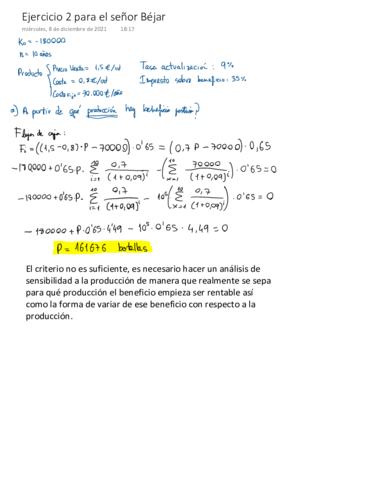 Ejercicio 2 para el señor Béjar
miércoles, 8 de diciembre de 2021 18:17
K₀ = -180000
n = 10 años
Producto { Precio Venta = 1,5 €/ud
Coste = 0,8 €/ud
Coste fijo = 70.000 €/año
Tasa actualización: 9%
Impuesto sobre beneficio: 35%
a) A partir de qué producción hay beneficio positivo?
Flujo de caja:
Fᵢ = ((1,5-0,8)·P - 70000)·0'65 = (0,7 P - 70000)·0,65
-180000 + 0'65 P · Σ 0,7/(1+0,09)ⁱ - (Σ 70000/(1+0,09)ⁱ)·0'65 = 0
-180000 + 0'65 P · Σ 0,7/(1+0,09)ⁱ - 10⁵(Σ 0,7/(1+0,09)ⁱ)·0'65 = 0
-180000 + P·0'65·4'49 - 10⁵·0'65·4,49 = 0
P = 161676 botellas
El criterio no es suficiente, es necesario hacer un análisis de
sensibilidad a la producción de manera que realmente se sepa
para qué producción el beneficio empieza ser rentable así
como la forma de variar de ese beneficio con respecto a la
producción.